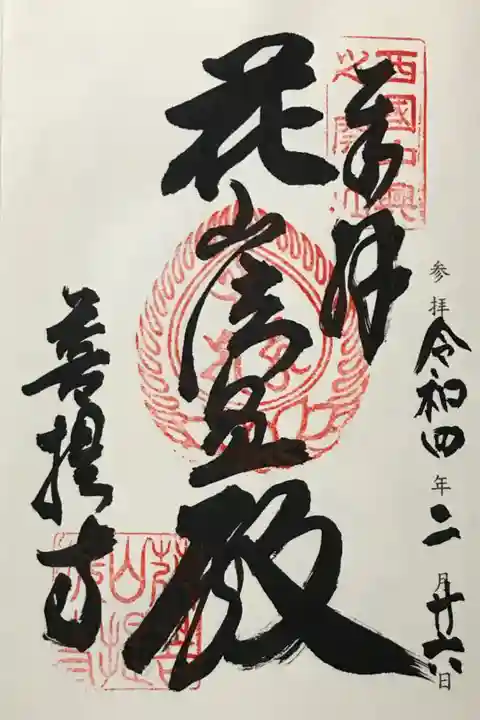 西國中興
奉拝
参拝 令和四年二月廿六日
花山法皇殿
菩提寺